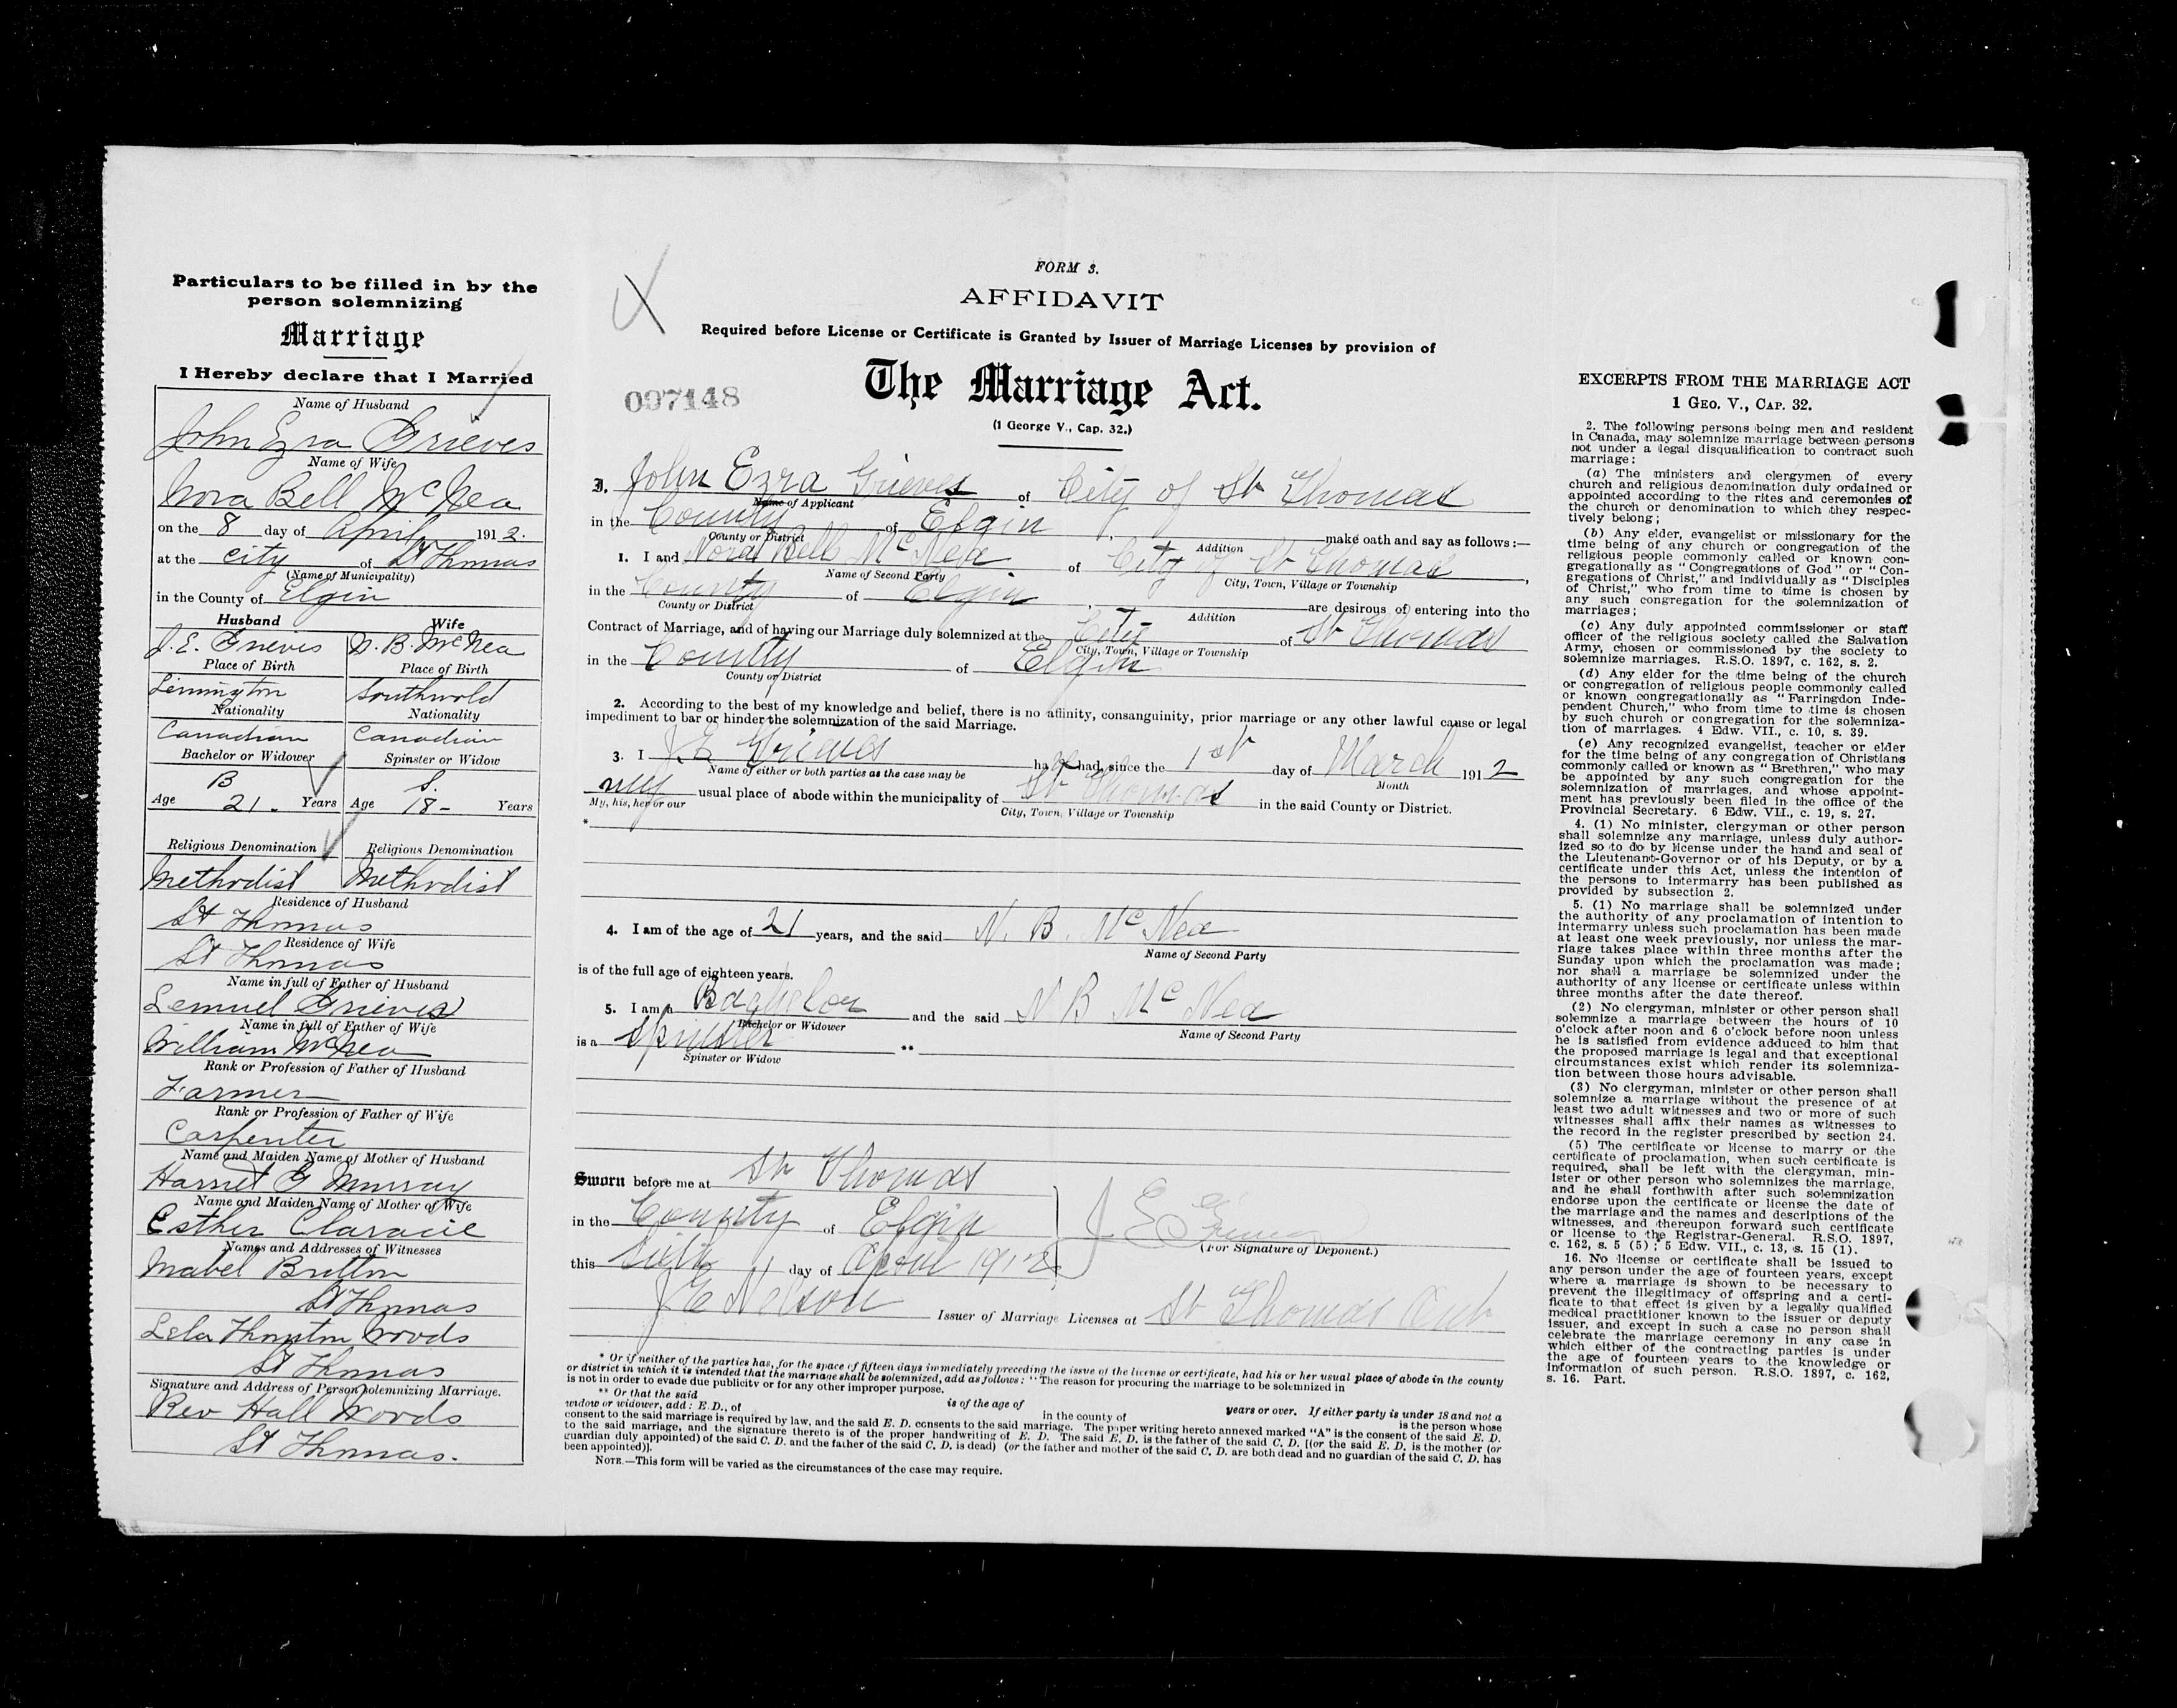 Particulars to be filled in by the
person solemnizing
Marriage
I Hereby declare that I Married
Name of Husband
John Ezra Grieves
Name of Wife
Nora Bell McNea
on the 8 day of April 1912.
at the city of St Thomas
(Name of Municipality)
in the County of Elgin
Husband Wife
J. E. Grieves N. B. McNea
Place of Birth Place of Birth
Southwold
Nationality Nationality
Canadian Canadian
Bachelor or Widower Spinster or Widow
B S.
Age 21. Years Age 18- Years
Religious Denomination Religious Denomination
Methodist Methodist
Residence of Husband
St Thomas
Residence of Wife
St Thomas
Name in full of Father of Husband
Lemuel Grieves
Name in full of Father of Wife
William McNea
Rank or Profession of Father of Husband
Farmer
Rank or Profession of Father of Wife
Carpenter
Name and Maiden Name of Mother of Husband
Harriet G Murray
Name and Maiden Name of Mother of Wife
Esther
Names and Addresses of Witnesses
Mabel Britton
St Thomas
Lela Thornton Woods
St Thomas
Signature and Address of Person solemnizing Marriage.
Rev Hall Woods
St Thomas.
FORM 3.
AFFIDAVIT
Required before License or Certificate is Granted by Issuer of Marriage Licenses by provision of
The Marriage Act.
097148
(1 George V., Cap. 32.)
I, John Ezra Grieves of City of St Thomas
Name of Applicant
in the County of Elgin, make oath and say as follows:—
County or District Addition
1. I and Nora Bell McNea of City of St Thomas,
Name of Second Party City, Town, Village or Township
in the County of Elgin, are desirous of entering into the
County or District Addition
Contract of Marriage, and of having our Marriage duly solemnized at the City of St Thomas
City, Town, Village or Township
in the County of Elgin
County or District
2. According to the best of my knowledge and belief, there is no affinity, consanguinity, prior marriage or any other lawful cause or legal
impediment to bar or hinder the solemnization of the said Marriage.
3. I J E Grieves ha ve had, since the 1st day of March 1912
Name of either or both parties as the case may be Month
my usual place of abode within the municipality of St Thomas in the said County or District.
My, his, her or our City, Town, Village or Township
*
4. I am of the age of 21 years, and the said N. B. McNea
Name of Second Party
is of the full age of eighteen years.
5. I am a Bachelor and the said N B McNea
Bachelor or Widower Name of Second Party
is a Spinster **
Spinster or Widow
Sworn before me at St Thomas
in the County of Elgin J E Grieves
(For Signature of Deponent.)
this Sixth day of April 1912
J E Nelson Issuer of Marriage Licenses at St Thomas Ont
* Or if neither of the parties has, for the space of fifteen days immediately preceding the issue of the license or certificate, had his or her usual place of abode in the county
or district in which it is intended that the marriage shall be solemnized, add as follows: "The reason for procuring the marriage to be solemnized in
is not in order to evade due publicity or for any other improper purpose.
** Or that the said is of the age of years or over. If either party is under 18 and not a
widow or widower, add: E.D., of in the county of is the person whose
consent to the said marriage is required by law, and the said E. D. consents to the said marriage. The paper writing hereto annexed marked "A" is the consent of the said E. D.
to the said marriage, and the signature thereto is of the proper handwriting of E. D. The said E. D. is the father of the said C. D. [(or the said E. D. is the mother (or
guardian duly appointed) of the said C. D. and the father of the said C. D. is dead) (or the father and mother of the said C. D. are both dead and no guardian of the said C. D. has
been appointed)].
NOTE.—This form will be varied as the circumstances of the case may require.
EXCERPTS FROM THE MARRIAGE ACT
1 GEO. V., CAP. 32.
2. The following persons being men and resident
in Canada, may solemnize marriage between persons
not under a legal disqualification to contract such
marriage:
(a) The ministers and clergymen of every
church and religious denomination duly ordained or
appointed according to the rites and ceremonies of
the church or denomination to which they respec-
tively belong;
(b) Any elder, evangelist or missionary for the
time being of any church or congregation of the
religious people commonly called or known con-
gregationally as "Congregations of God" or "Con-
gregations of Christ," and individually as "Disciples
of Christ," who from time to time is chosen by
any such congregation for the solemnization of
marriages;
(c) Any duly appointed commissioner or staff
officer of the religious society called the Salvation
Army, chosen or commissioned by the society to
solemnize marriages. R.S.O. 1897, c. 162, s. 2.
(d) Any elder for the time being of the church
or congregation of religious people commonly called
or known congregationally as "Farringdon Inde-
pendent Church," who from time to time is chosen
by such church or congregation for the solemniza-
tion of marriages. 4 Edw. VII., c. 10, s. 39.
(e) Any recognized evangelist, teacher or elder
for the time being of any congregation of Christians
commonly called or known as "Brethren," who may
be appointed by any such congregation for the
solemnization of marriages, and whose appoint-
ment has previously been filed in the office of the
Provincial Secretary. 6 Edw. VII., c. 19, s. 27.
4. (1) No minister, clergyman or other person
shall solemnize any marriage, unless duly author-
ized so to do by license under the hand and seal of
the Lieutenant-Governor or of his Deputy, or by a
certificate under this Act, unless the intention of
the persons to intermarry has been published as
provided by subsection 2.
5. (1) No marriage shall be solemnized under
the authority of any proclamation of intention to
intermarry unless such proclamation has been made
at least one week previously, nor unless the mar-
riage takes place within three months after the
Sunday upon which the proclamation was made;
nor shall a marriage be solemnized under the
authority of any license or certificate unless within
three months after the date thereof.
(2) No clergyman, minister or other person shall
solemnize a marriage between the hours of 10
o'clock after noon and 6 o'clock before noon unless
he is satisfied from evidence adduced to him that
the proposed marriage is legal and that exceptional
circumstances exist which render its solemniza-
tion between those hours advisable.
(3) No clergyman, minister or other person shall
solemnize a marriage without the presence of at
least two adult witnesses and two or more of such
witnesses shall affix their names as witnesses to
the record in the register prescribed by section 24.
(5) The certificate or license to marry or the
certificate of proclamation, when such certificate is
required, shall be left with the clergyman, min-
ister or other person who solemnizes the marriage,
and he shall forthwith after such solemnization
endorse upon the certificate or license the date of
the marriage and the names and descriptions of the
witnesses, and thereupon forward such certificate
or license to the Registrar-General. R.S.O. 1897,
c. 162, s. 5 (5); 5 Edw. VII., c. 13, s. 15 (1).
16. No license or certificate shall be issued to
any person under the age of fourteen years, except
where a marriage is shown to be necessary to
prevent the illegitimacy of offspring and a certi-
ficate to that effect is given by a legally qualified
medical practitioner known to the issuer or deputy
issuer, and except in such a case no person shall
celebrate the marriage ceremony in any case in
which either of the contracting parties is under
the age of fourteen years to the knowledge or
information of such person. R.S.O. 1897, c. 162,
s. 16. Part.